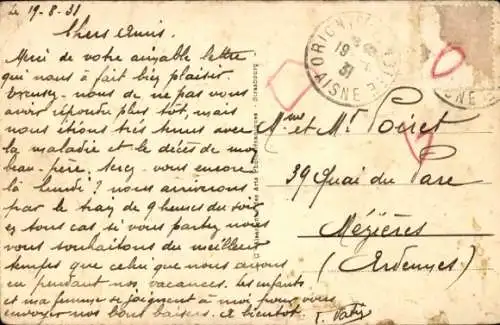 le 19-8-31
Chers amis.
Merci de votre aimable lettre
qui nous à fait bien plaisir.
Excusez-nous de ne pas vous
avoir répondu plus tôt, mais
nous étions très tenus avec
la maladie et le décès de mon
beau-père; serez-vous encore
là lundi? nous arriverons
par le train de 9 heures du soir
en tous cas si vous partez nous
vous souhaitons du meilleur
temps que celui que nous avons
eu pendant nos vacances. Les enfants
et ma femme se joignent à moi pour vous
envoyer nos bons baisers. A bientôt.
Mme et Mr Poiret
39 Quai du Parc
Mézières
(Ardennes)
ORIGNY
AISNE
19
31
Strasbourg